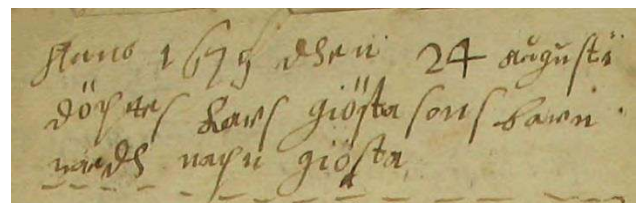 Anno 1675 dhen 24 augusti
döptes Lars giösta sons barn
medh napn giösta